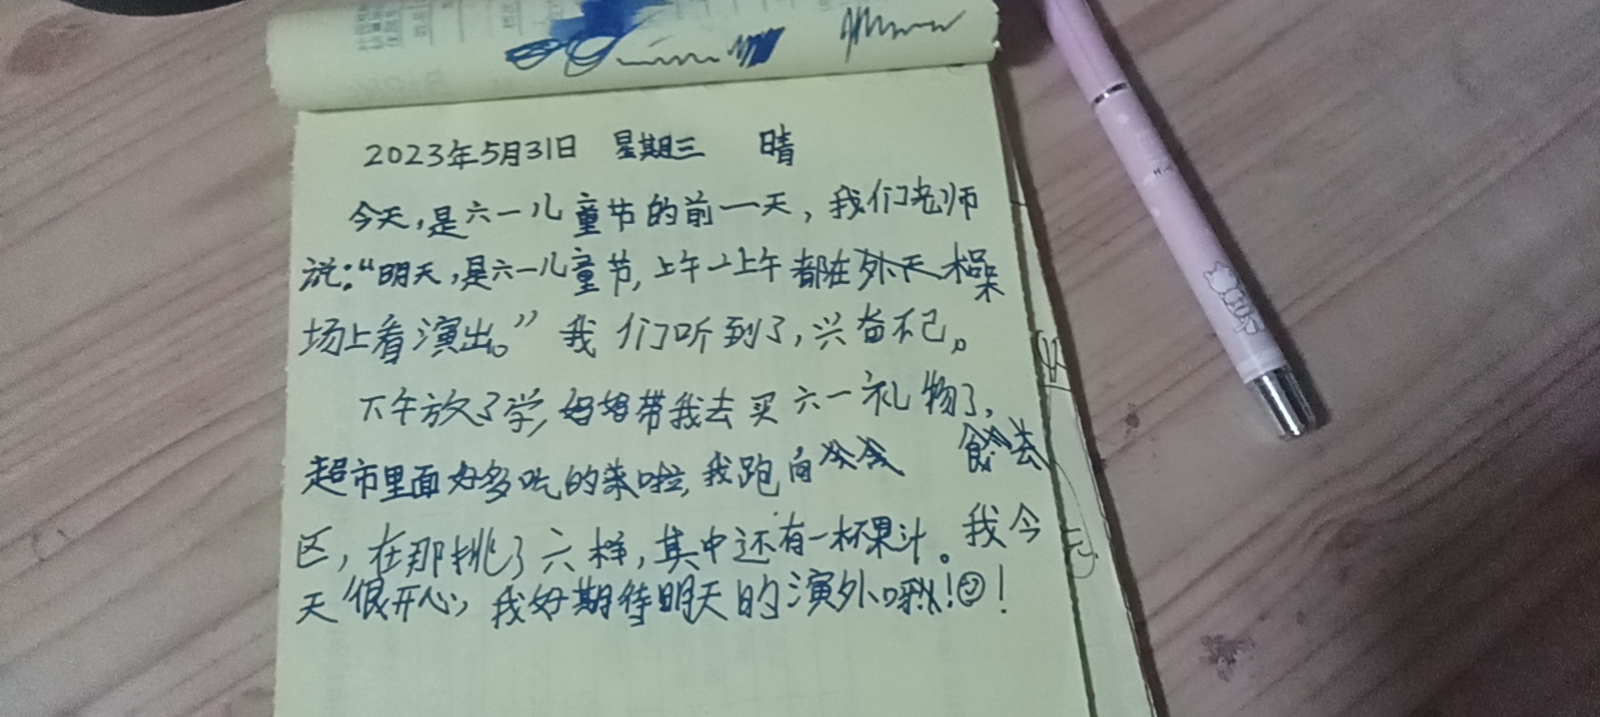 2023年5月31日 星期三 晴
今天,是六一儿童节的前一天,我们老师
说:“明天,是六一儿童节,上午一上午都在外天操
场上看演出。”我们听到了,兴奋不已。
下午放了学,妈妈带我去买六一礼物了,
超市里面好多吃的菜啦,我跑向
区,在那挑了六样,其中还有一杯果汁。我今
天很开心,我好期待明天的演外哦!☺!